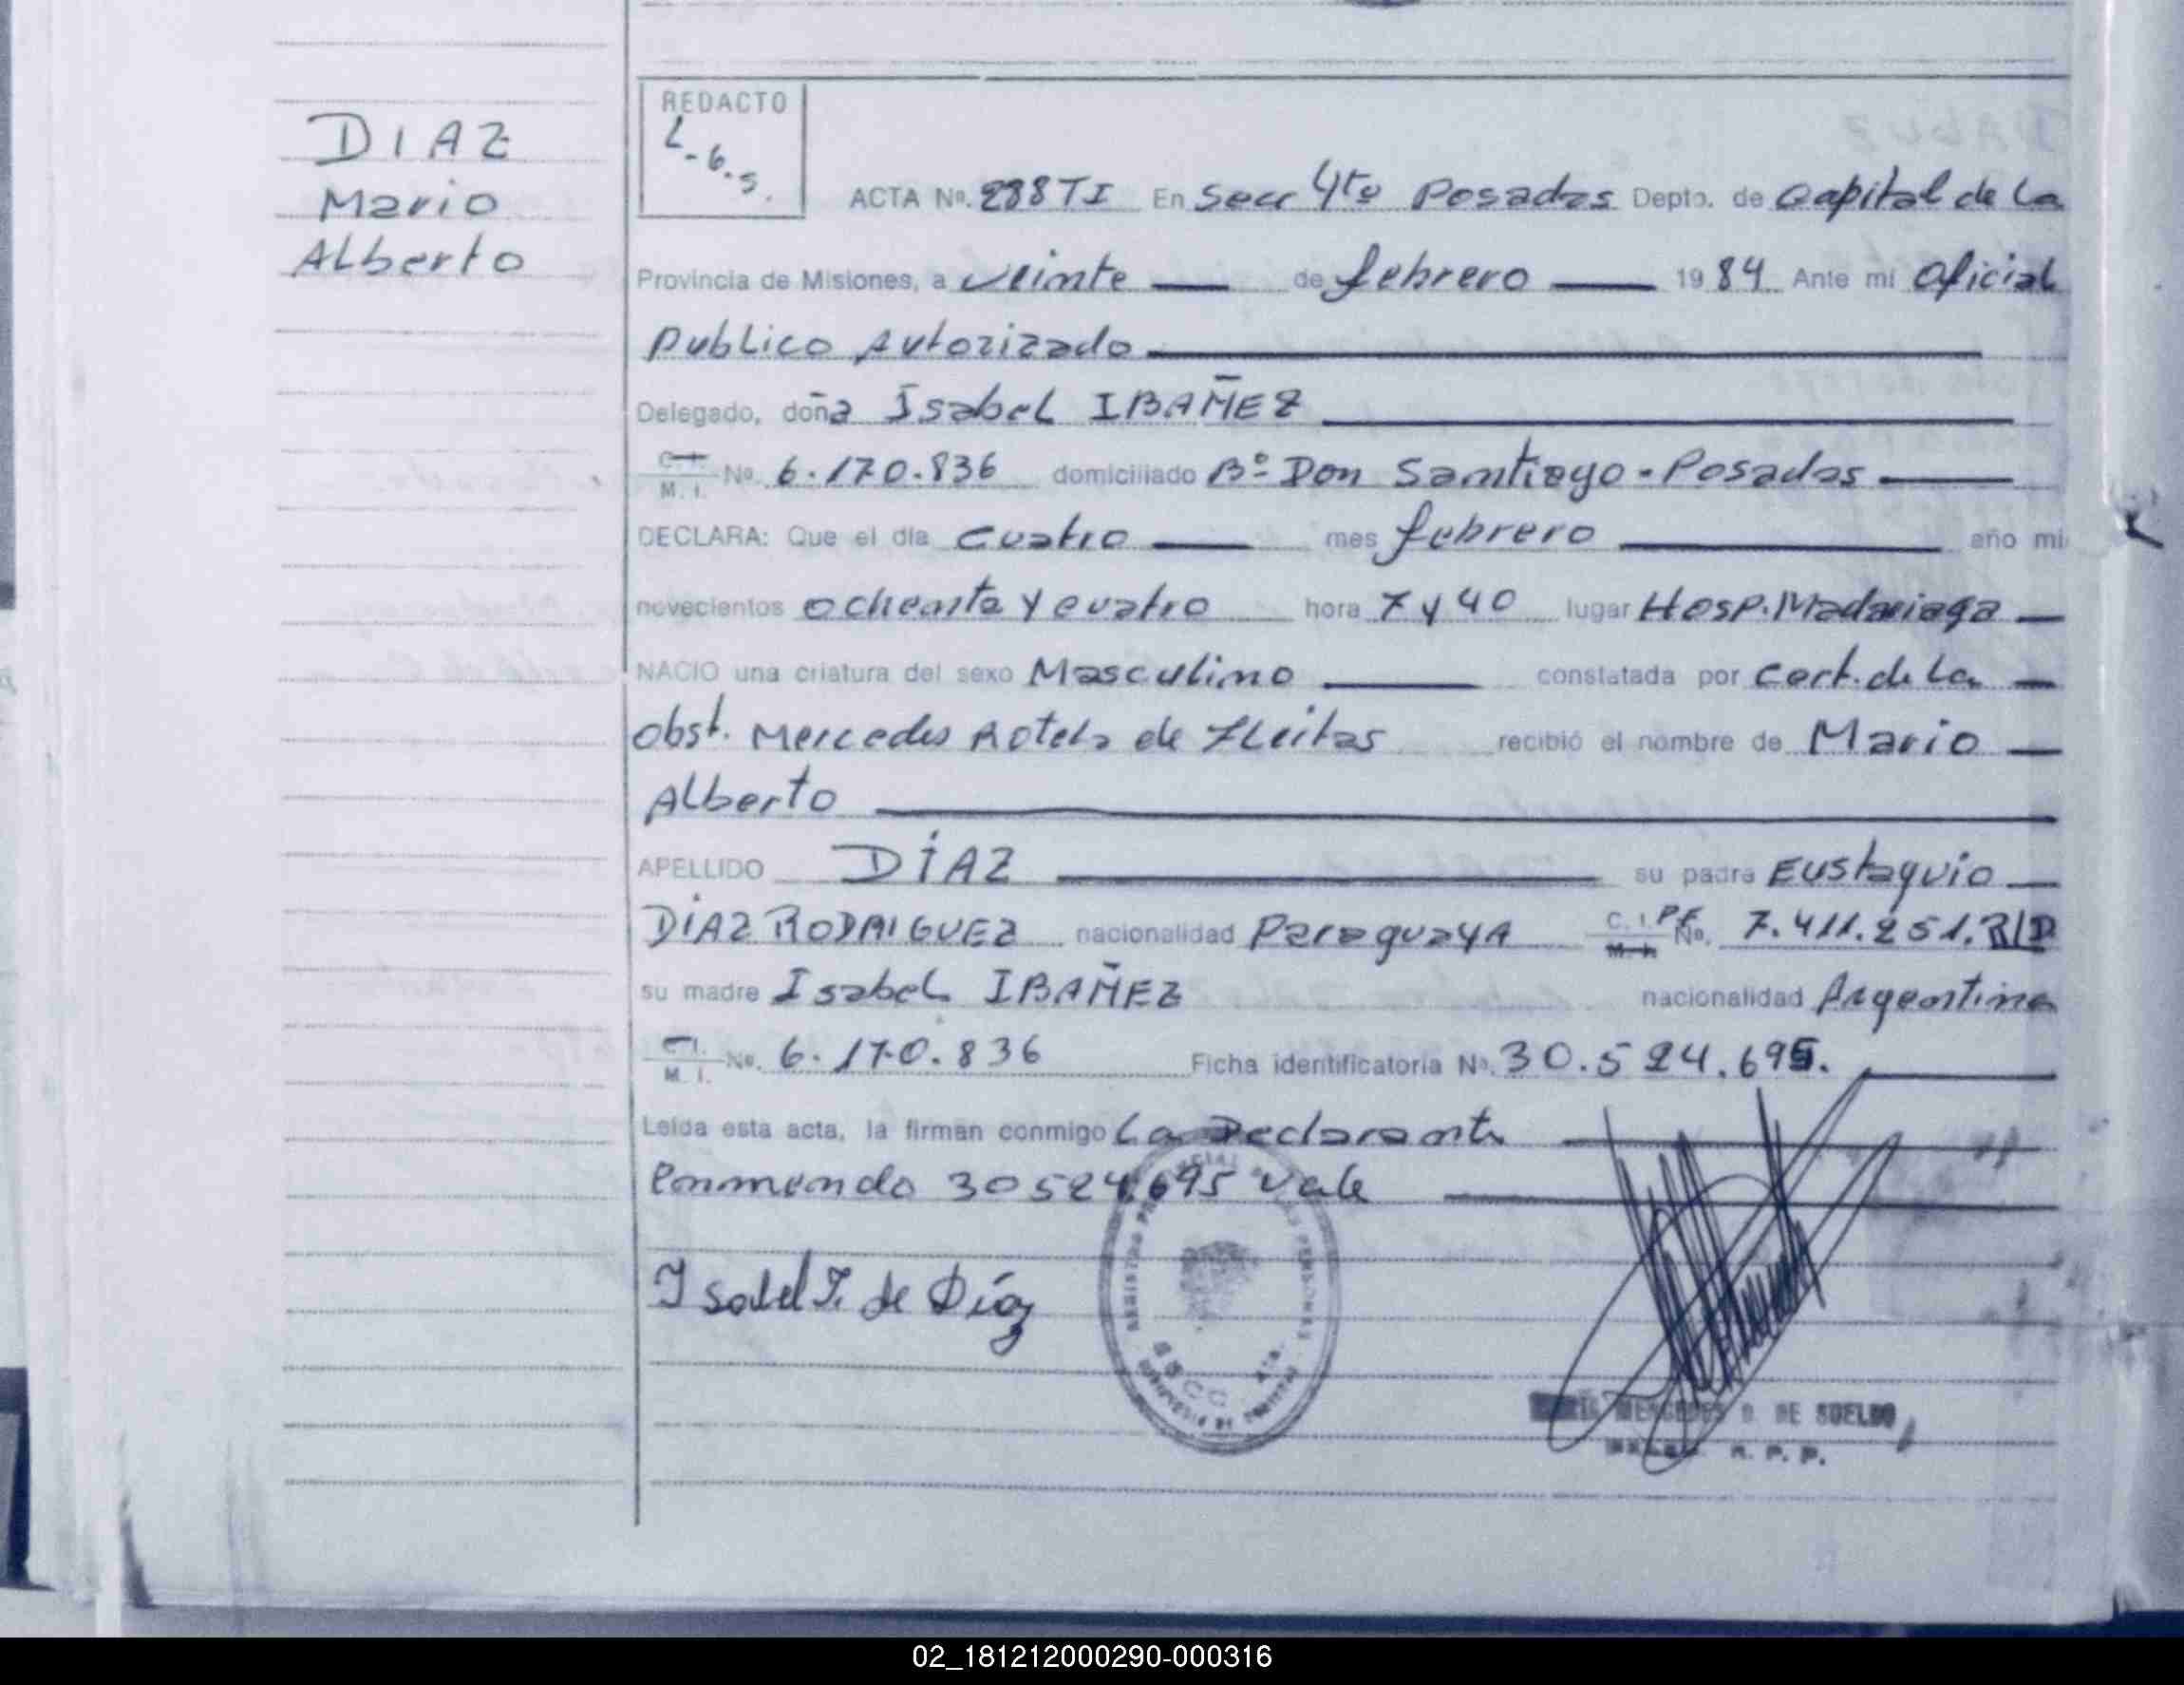 DIAZ
Mario
Alberto
REDACTO
L-6.s.
ACTA Nº. 288 TI En Secc 4to Posadas Depto. de Capital de La
Provincia de Misiones, a veinte — de febrero — 1984 Ante mí Oficial
Publico Autorizado —
Delegado, doña Isabel IBAÑEZ —
C. I. M. I. Nº 6.170.836 domiciliado Bº Don Santiago - Posadas —
DECLARA: Que el día cuatro — mes febrero — año mil
novecientos ochenta y cuatro hora 7 y 40 lugar Hosp. Madariaga —
NACIO una criatura del sexo Masculino — constatada por Cert. de La —
Obst. Mercedes Rotela de Fleitas recibió el nombre de Mario —
Alberto —
APELLIDO DÍAZ — su padre Eustaquio —
DÍAZ RODRIGUEZ nacionalidad Paraguaya C. I. PF M. I. Nº. 7.411.251.
su madre Isabel IBAÑEZ nacionalidad Argentina
C. I. M. I. Nº. 6.170.836 Ficha identificatoria Nº. 30.524.695. —
Leída esta acta, la firman conmigo La Declarante —
Enmendo 30524.695 Vale —
Isabel I. de Díaz
MERCEDES D. DE SUELDO
R. P. P.
02_181212000290-000316